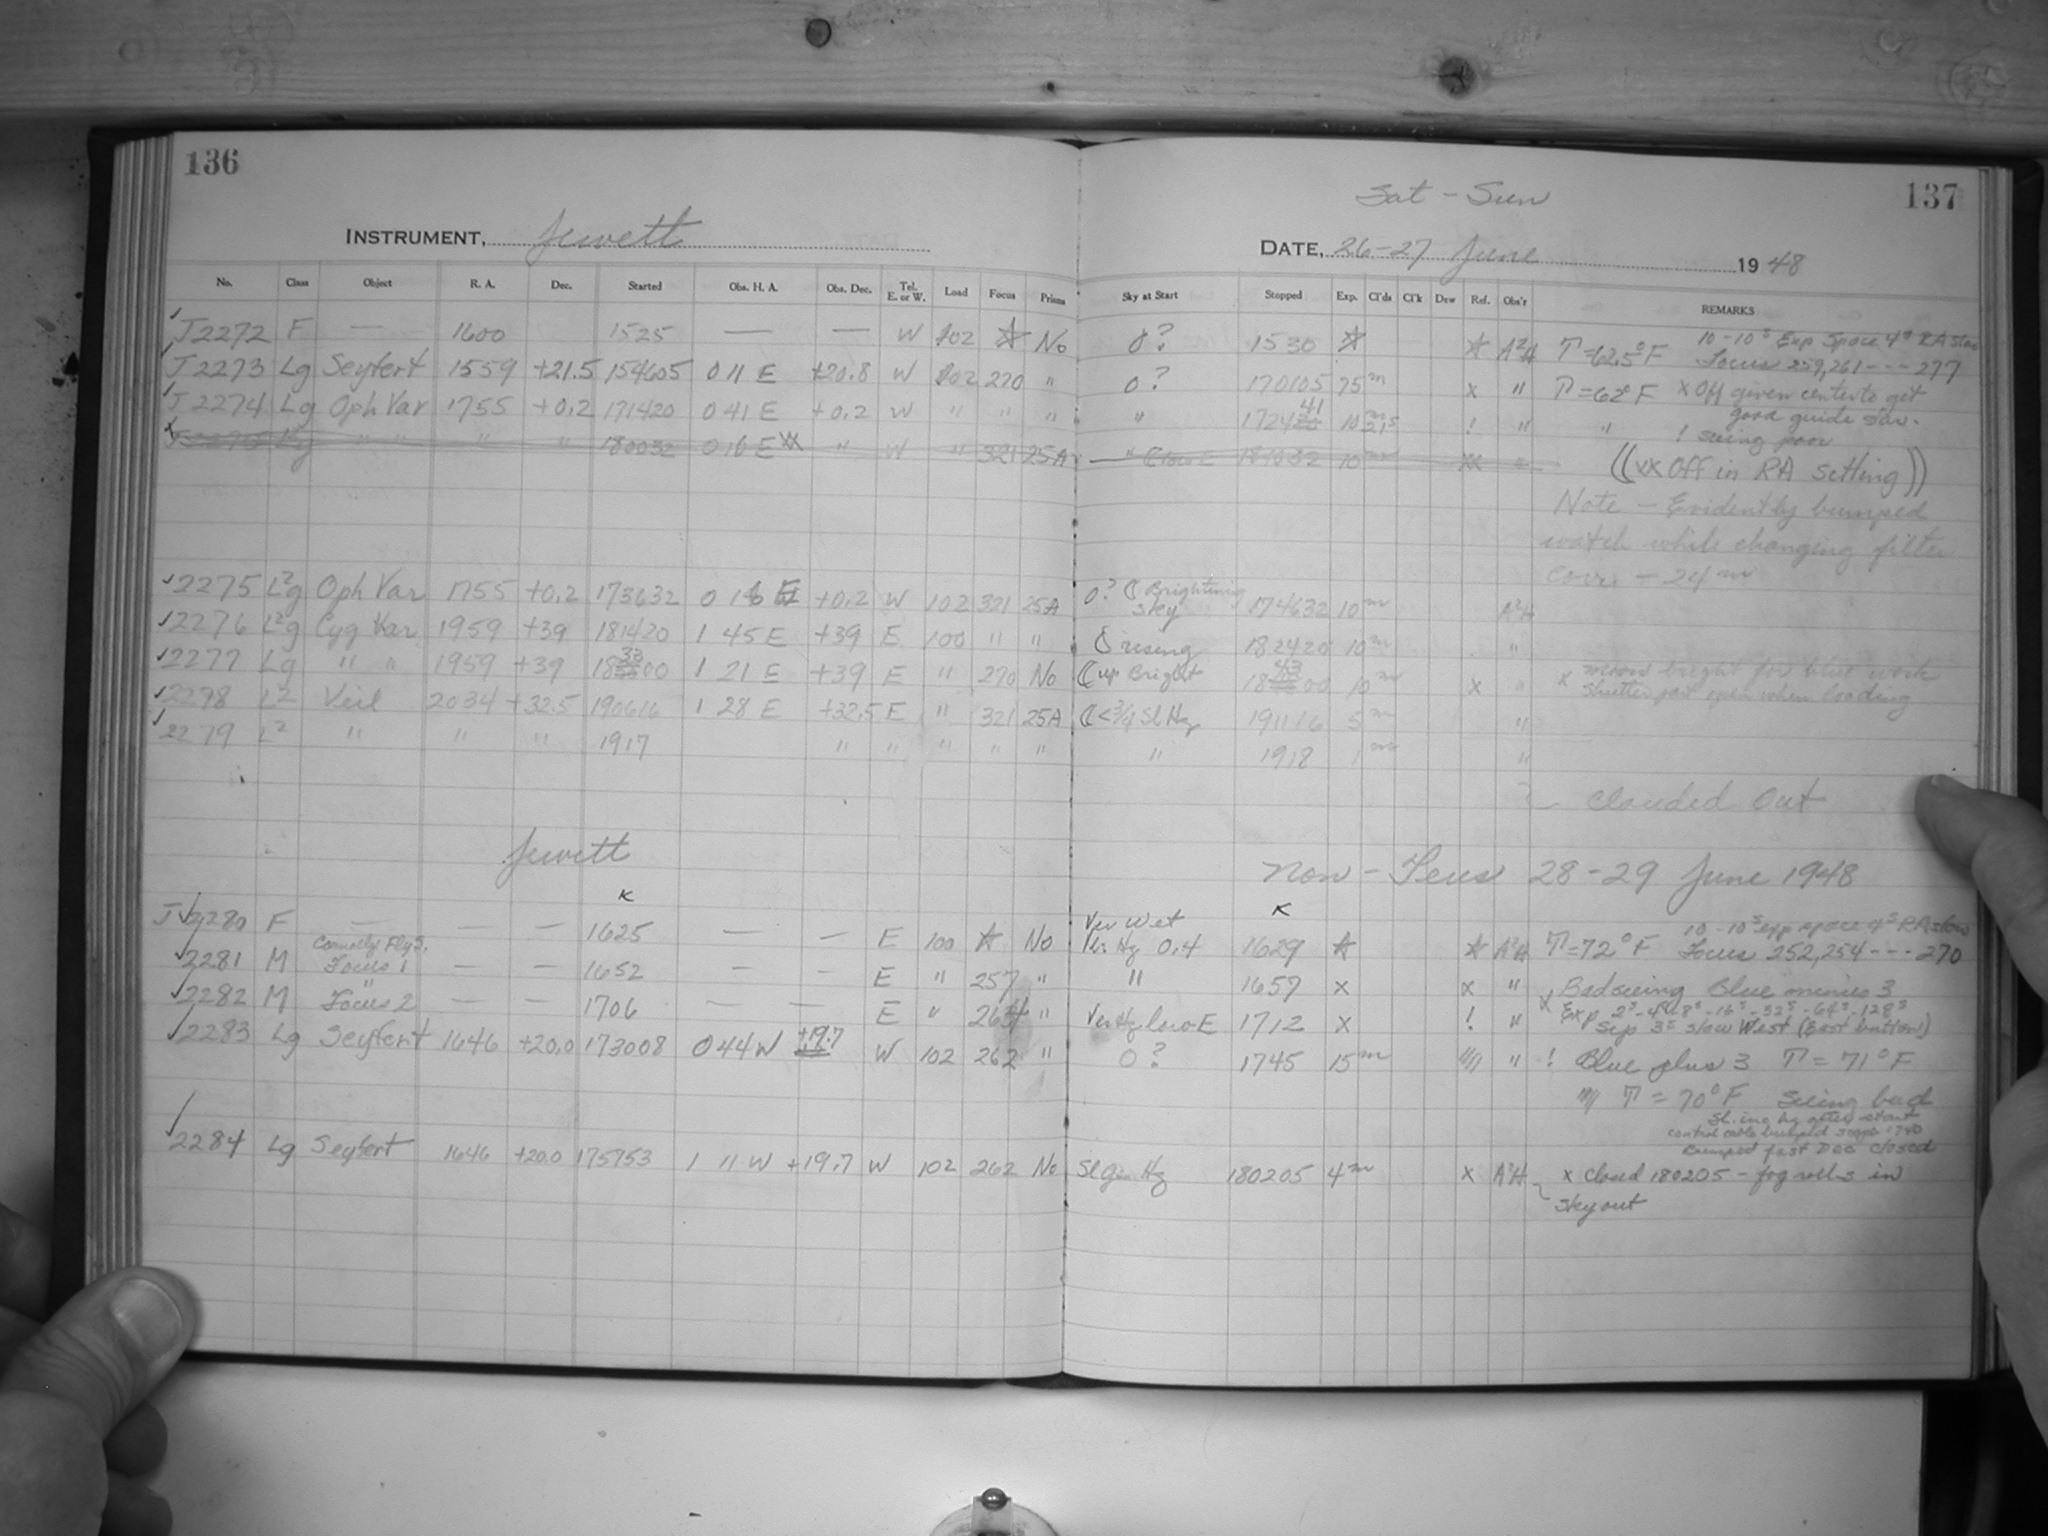 136
INSTRUMENT, Jewett
No. Class Object R. A. Dec. Started Obs. H. A. Obs. Dec. Tel. E. or W. Load Focus Prisms
J2272 F — 1600 1525 — — W 102 ☆ No
J2273 Lg Seyfert 1559 +21.5 154605 0 11 E +20.8 W 102 270 "
J2274 Lg Oph Var 1755 +0.2 171420 0 41 E +0.2 W " " "
" " " " 180032 0 16 E xx " W " 321 25A
2275 L²g Oph Var 1755 +0.2 173632 0 16 E +0.2 W 102 321 25A
2276 L²g Cyg Var 1959 +39 181420 1 45 E +39 E 100 " "
2277 Lg " " 1959 +39 183300 1 21 E +39 E " 270 No
2278 L² Veil 2034 +32.5 190616 1 28 E +32.5 E " 321 25A
2279 L² " " " 1917 " " " " "
Jewett
K
J 2280 F — — — 1625 — — E 100 ☆ No
2281 M Focus 1 — — 1652 — — E " 257 "
2282 M " Focus 2 — — 1706 — — E " "
2283 Lg Seyfert 1646 +20.0 173008 0 44 W +19.7 W 102 262 "
2284 Lg Seyfert 1646 +20.0 175753 1 11 W +19.7 W 102 262 No
137
Sat - Sun
DATE, 26-27 June 1948
Sky at Start Stopped Exp. Cl'ds Cl'k Drw Ref. Obs'r REMARKS
0? 1530 ☆ ☆ A²H T=62.5°F 10-10ˢ Exp Space 4ˢ RA slow
Focus 259,261---277
0? 170105 75ᵐ x " T=62°F x Off given center to get
good guide star.
" 172441 10ᵐ 21ˢ ! " " ! seeing poor
" ☾ low E 181032 10ᵐ xx " ((xx Off in RA setting))
Note - Evidently bumped
watch while changing filter
cover - 24ᵐ
0? ☾ Brightening sky 174632 10ᵐ A²H
☾ rising 182420 10ᵐ "
☾ up Bright 184300 10ᵐ x " x moon bright for blue work
shutter part open when loading
☾ <3/4 Sl Hz 191116 5ᵐ "
" 1918 1ᵐ "
Clouded Out
Mon - Tues 28-29 June 1948
K
Ver Wet
Hz 0.4 1629 ☆ ☆ A²H T=72°F 10-10ˢ exp space 4ˢ RA slow
Focus 252,254---270
" 1657 x x " Bad seeing Blue minus 3
x Exp 2ˢ-4ˢ-8ˢ-16ˢ-32ˢ-64ˢ-128ˢ
Ver Hz low E 1712 x ! " Sep 3ˢ slow West (East button)
0? 1745 15ᵐ //// " ! Blue plus 3 T=71°F
//// T=70°F Seeing bad
bumped fast Dec closed
Hz 180205 4ᵐ x A²H x Closed 180205 - fog rolls in
sky out